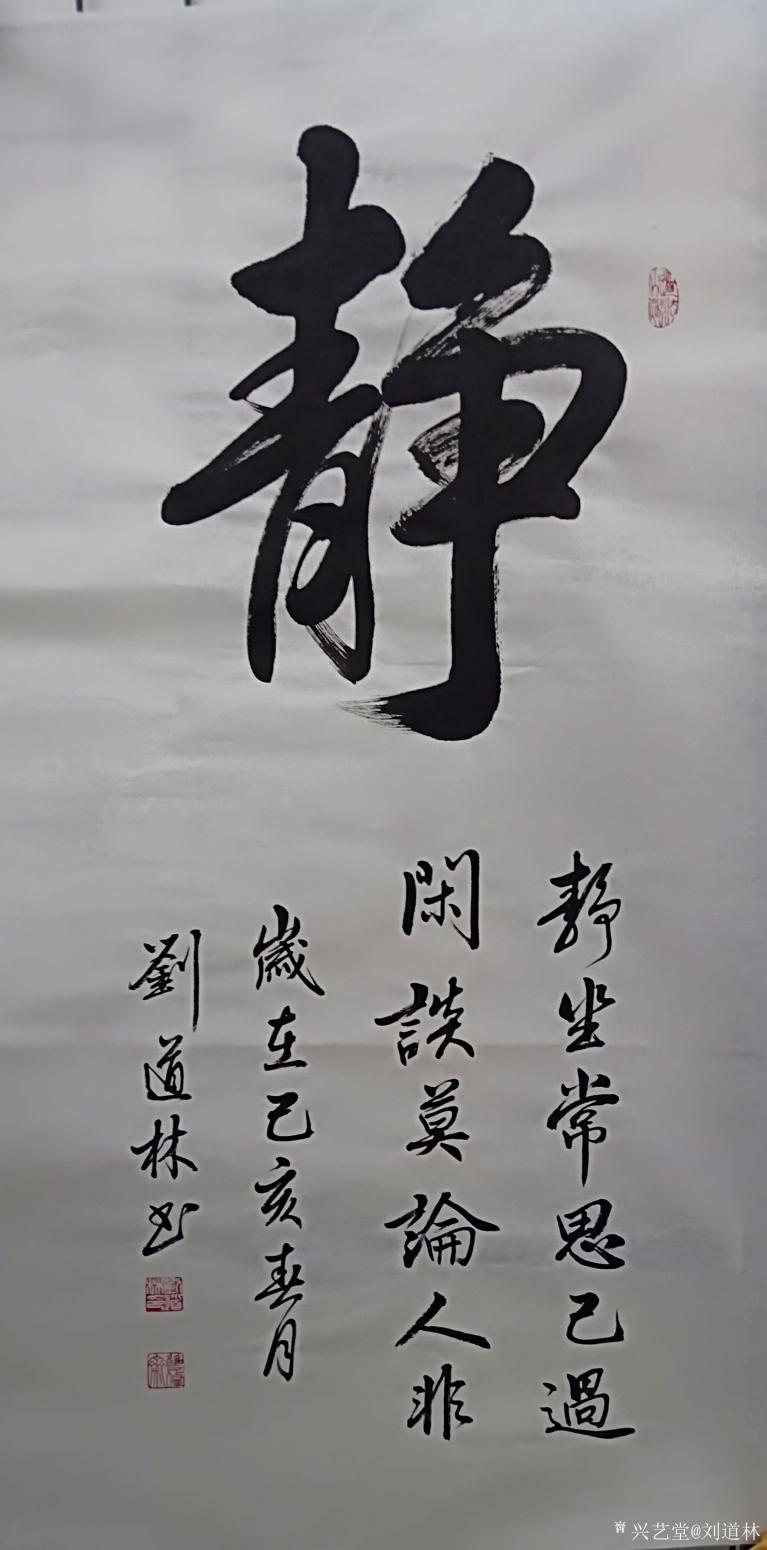 静
静坐常思己過
閑談莫論人非
歲在己亥春月
劉道林书
兴艺堂@刘道林